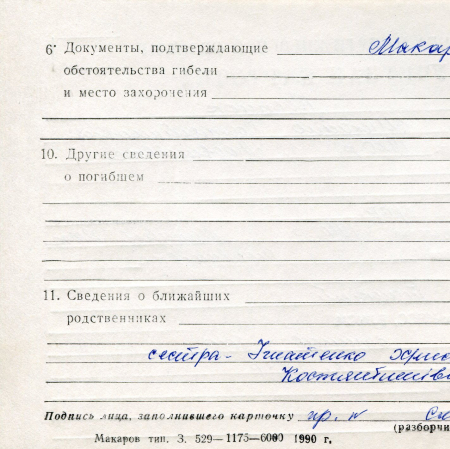 6. Документы, подтверждающие Макар
обстоятельства гибели
и место захоронения
10. Другие сведения
о погибшем
11. Сведения о ближайших
родственниках
сестра - Игнатенко
Костянтинів
Подпись лица, заполнившего карточку пр. N
(разборчи
Макаров тип. З. 529—1175—6000 1990 г.